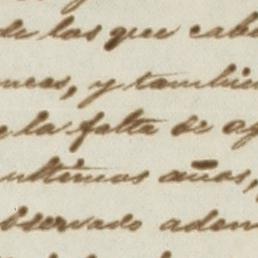 de los que cabe
neas, y tambien
y la falta de ag
ultimos años,
observado adem